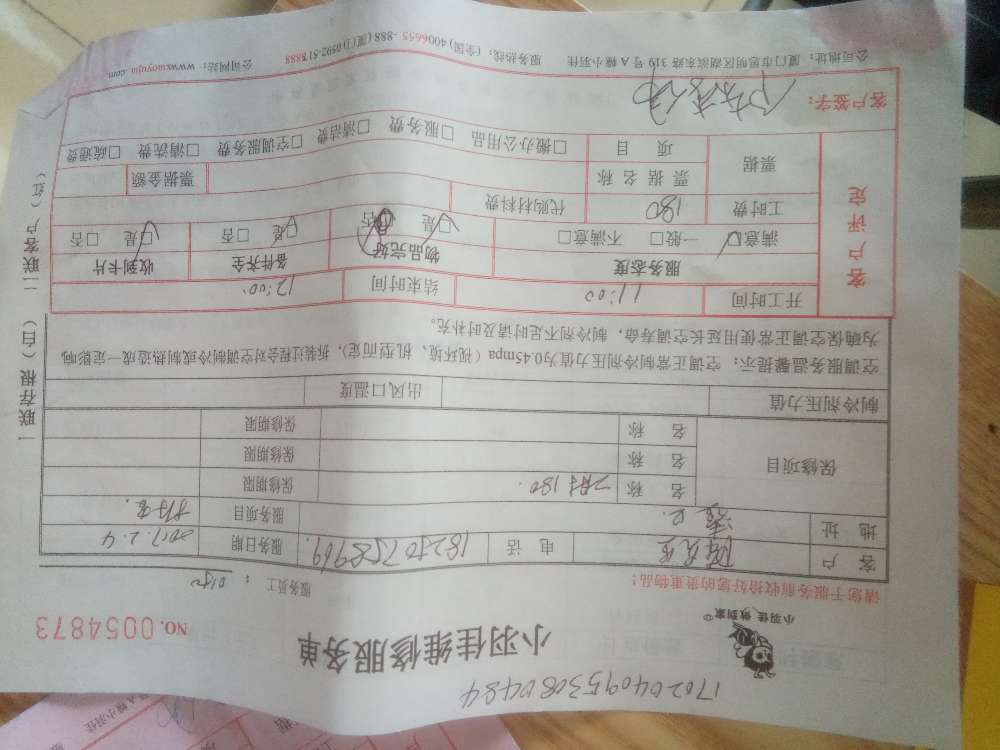 17020409530800484
小羽佳 做到家
小羽佳维修服务单
NO. 0054873
请您于服务前收拾好您的贵重物品!
服务员工：0152
客户 陈先生 电话 18250758969 服务日期 2017.2.4
地址 服务项目
保修项目 名称 工时180. 保修期限
名称 保修期限
名称 保修期限
制冷剂压力值 出风口温度
空调服务温馨提示：空调正常制冷剂压力值为0.45mpa（视环境、机型而定），拆装过程会对空调制冷或制热造成一定影响，
为确保空调正常使用延长空调寿命，制冷剂不足时请及时补充。
开工时间 11:00 结束时间 12:00
客户评定
服务态度 物品完好 备件齐全 收到卡片
满意☑ 一般□ 不满意□ 是 否 是 □否 是 □否
工时费 180 代购材料费
票据 票据名称 票据金额
项目 □搬办公用品 □服务费 □清洁费 □空调服务费 □清洗费 □疏通费
客户签字：
公司地址：厦门市思明区湖滨东路319号A幢小羽佳 服务热线：（全国）4006655-888（厦门）0592-5178888 公司网站：www.xiaoyujia.com
一联存根（白） 二联客户（红）